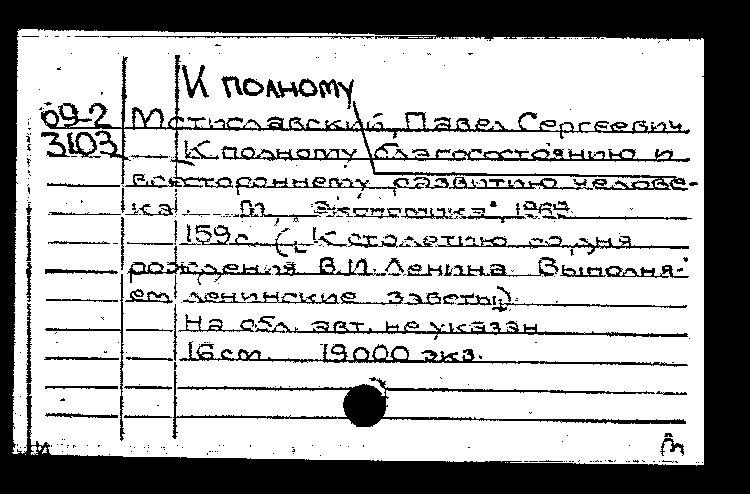 К полному
69-2 Мстиславский, Павел Сергеевич.
3103 К полному благосостоянию и
всестороннему развитию челове-
ка. М., "Экономика", 1969
159с. (К столетию со дня
рождения В.И. Ленина. Выполня-
ем ленинские заветы)
На обл. авт. не указан
16 см. 19000 экз.
и